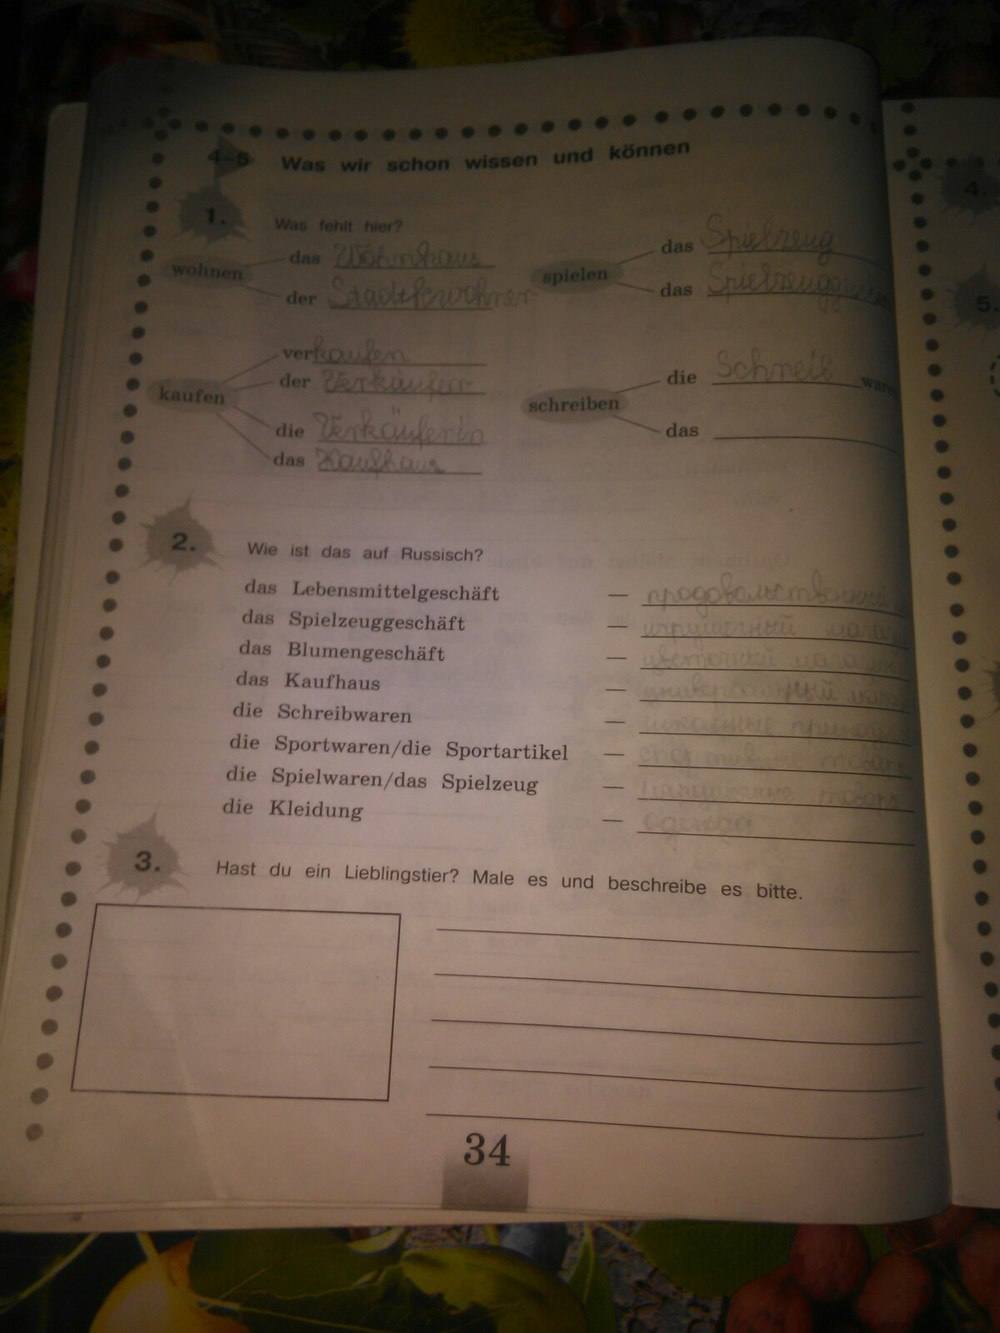 4–5 Was wir schon wissen und können
1. Was fehlt hier?
wohnen
das Wohnhaus
der Stadtbewohner
spielen
das Spielzeug
das
kaufen
verkaufen
der Verkäufer
die Verkäuferin
das Kaufhaus
schreiben
die Schreib waren
das
2. Wie ist das auf Russisch?
das Lebensmittelgeschäft —
das Spielzeuggeschäft — игрушечный
das Blumengeschäft — цветочный
das Kaufhaus —
die Schreibwaren —
die Sportwaren/die Sportartikel —
die Spielwaren/das Spielzeug —
die Kleidung — одежда
3. Hast du ein Lieblingstier? Male es und beschreibe es bitte.
34
4.
5.